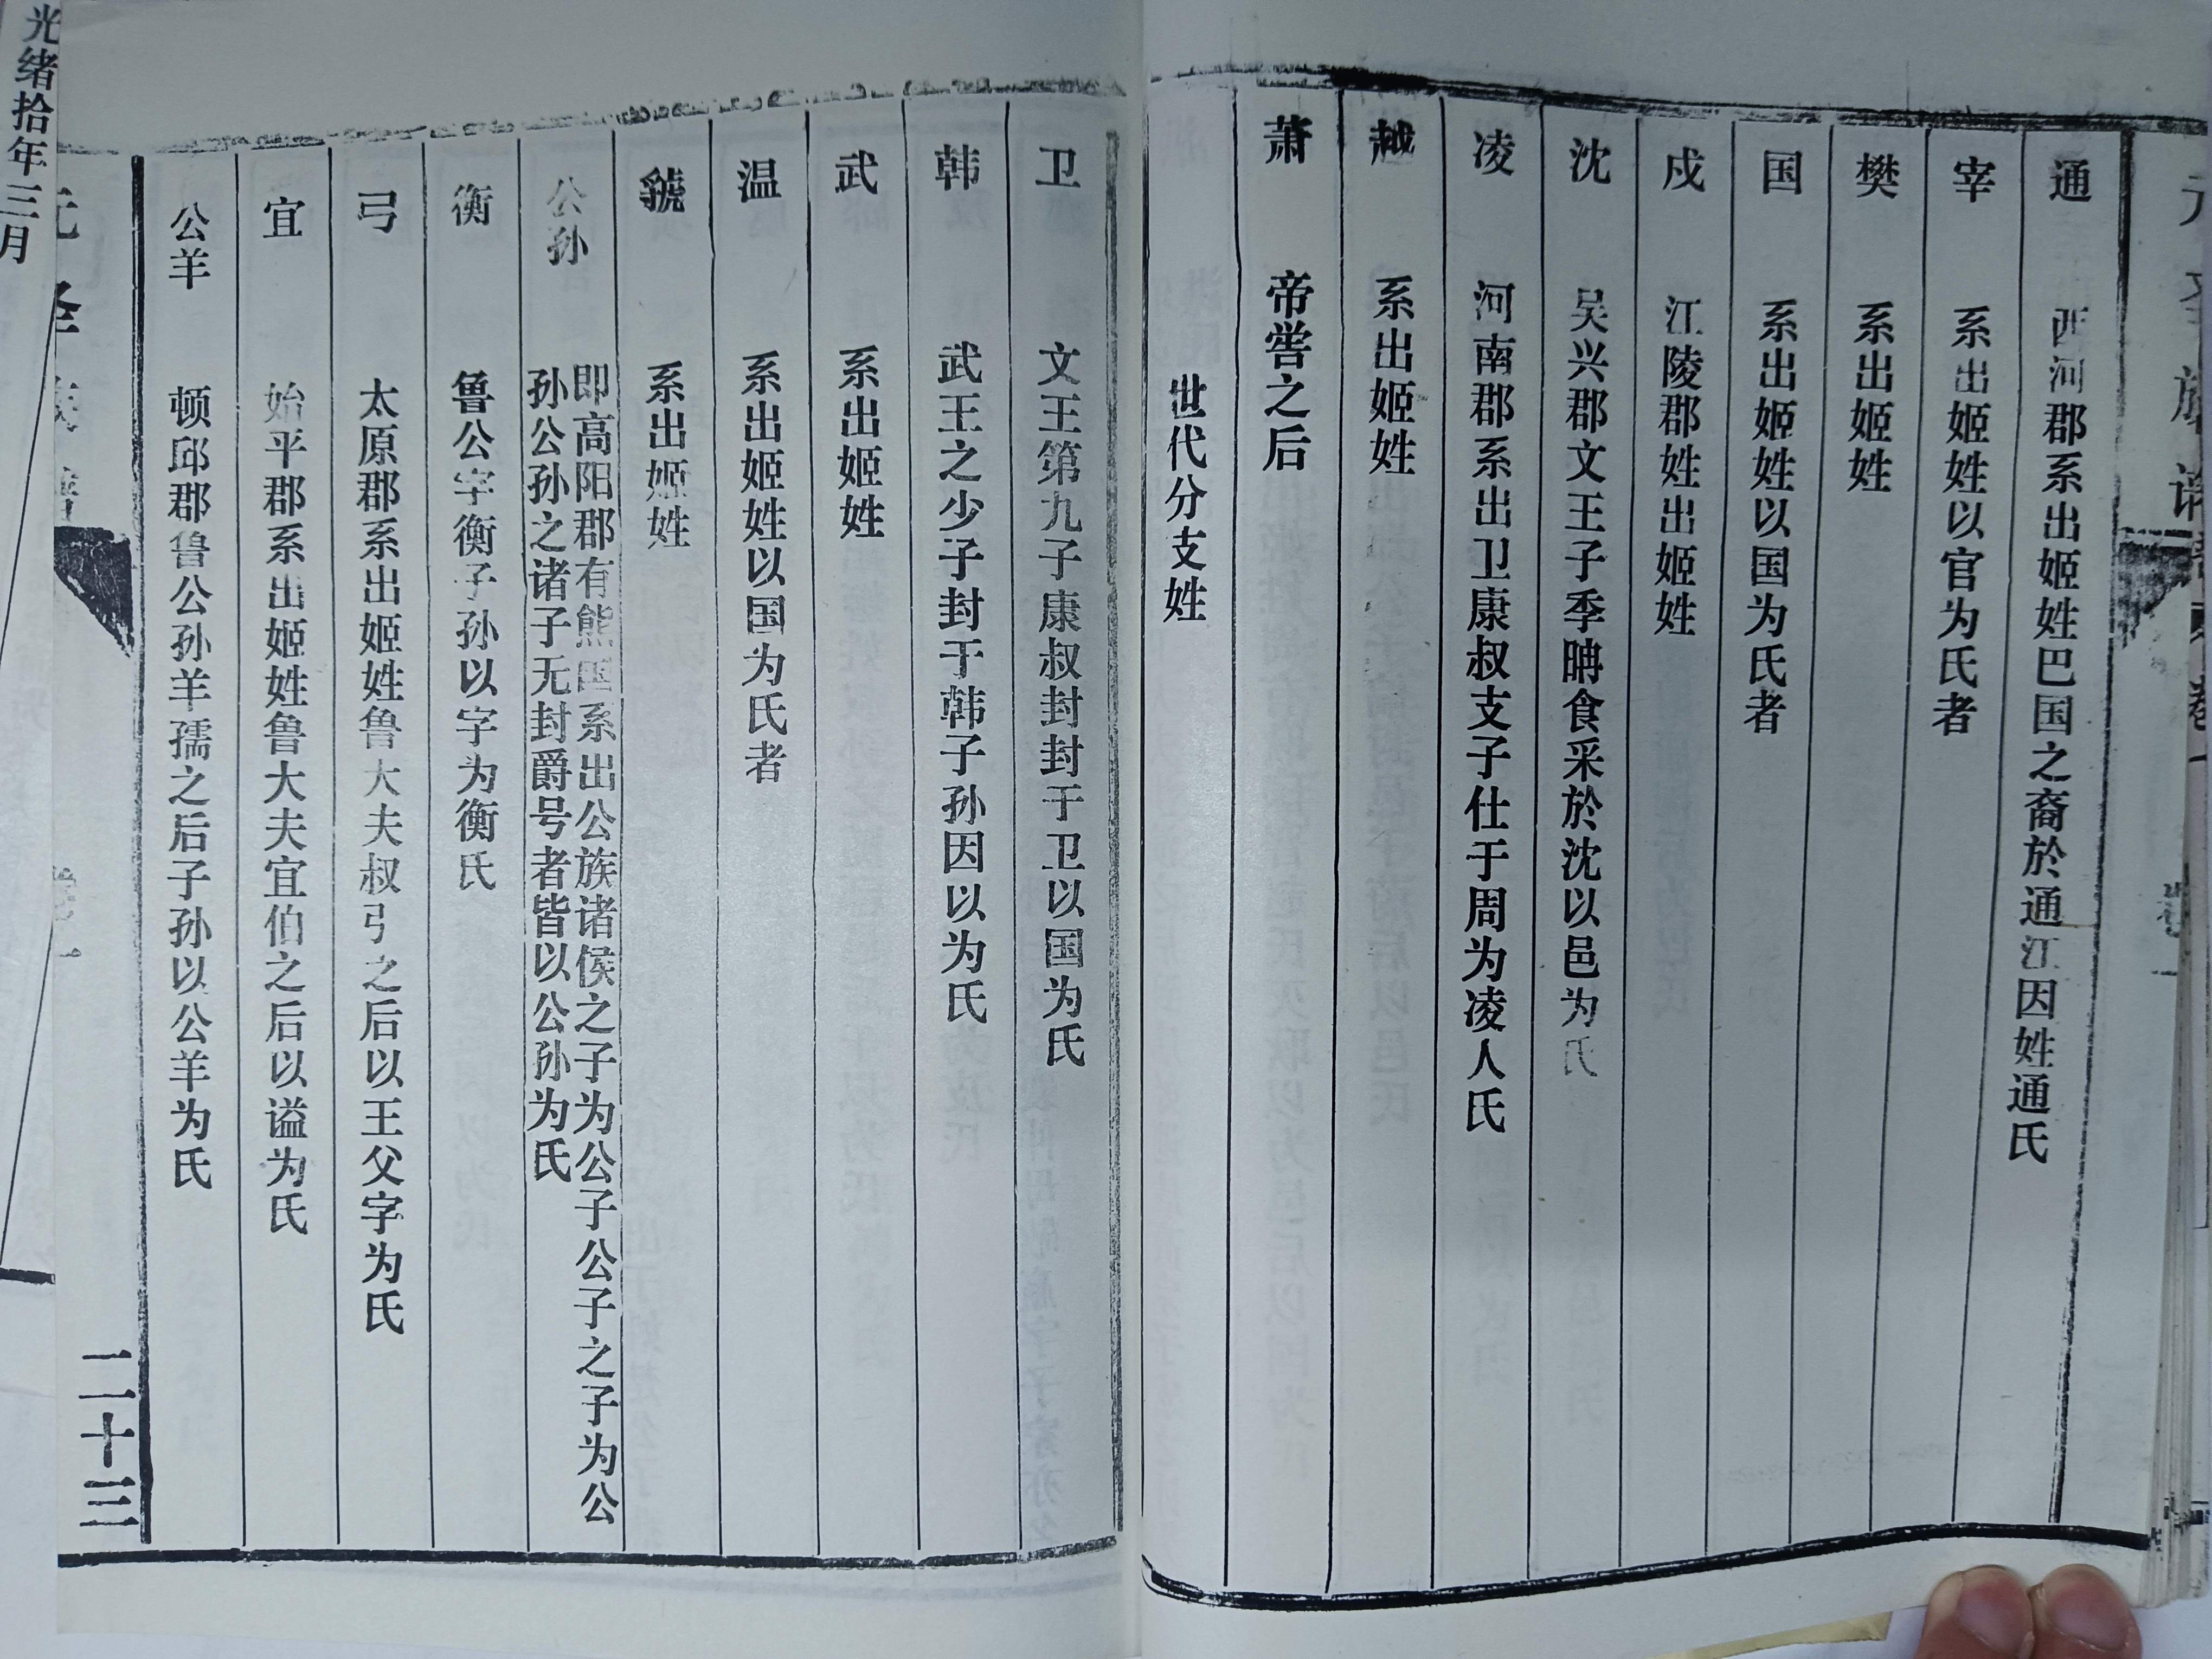 通 西河郡系出姬姓巴国之裔於通江因姓通氏
宰 系出姬姓以官为氏者
樊 系出姬姓
国 系出姬姓以国为氏者
戍 江陵郡姓出姬姓
沈 吴兴郡文王子季聃食采於沈以邑为氏
凌 河南郡系出卫康叔支子仕于周为凌人氏
越 系出姬姓
萧 帝喾之后
世代分支姓
卫 文王第九子康叔封封于卫以国为氏
韩 武王之少子封于韩子孙因以为氏
武 系出姬姓
温 系出姬姓以国为氏者
系出姬姓
公孙 即高阳郡有熊国系出公族诸侯之子为公子公子之子为公
孙公孙之诸子无封爵号者皆以公孙为氏
衡 鲁公字衡子孙以字为衡氏
弓 太原郡系出姬姓鲁大夫叔弓之后以王父字为氏
宜 始平郡系出姬姓鲁大夫宜伯之后以谥为氏
公羊 顿邱郡鲁公孙羊孺之后子孙以公羊为氏
二十三
光绪拾年三月